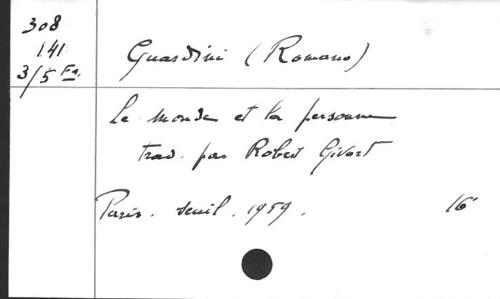 308
141
3/5 Fa.
Guardini (Romano)
Le monde et la personne
trad. par Robert Givort
Paris. Seuil. 1959.
16°